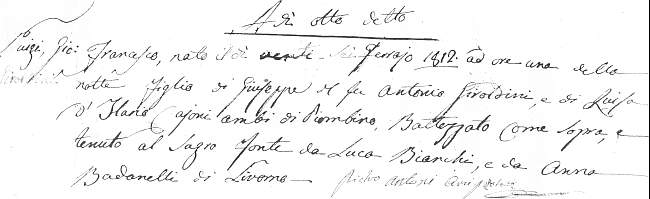 A di otto detto
Luigi, Gio: Francesco, nato il dì venti sei Ferrajo 1812. ad ore una della
notte figlio di Giuseppe del fu Antonio Giroldini, e di Luisa
d'Ilario Cajoni ambi di Piombino, Battezzato come sopra, e
tenuto al Sagro Fonte da Luca Bianchi, e da Anna
Badanelli di Livorno Pietro Antoni